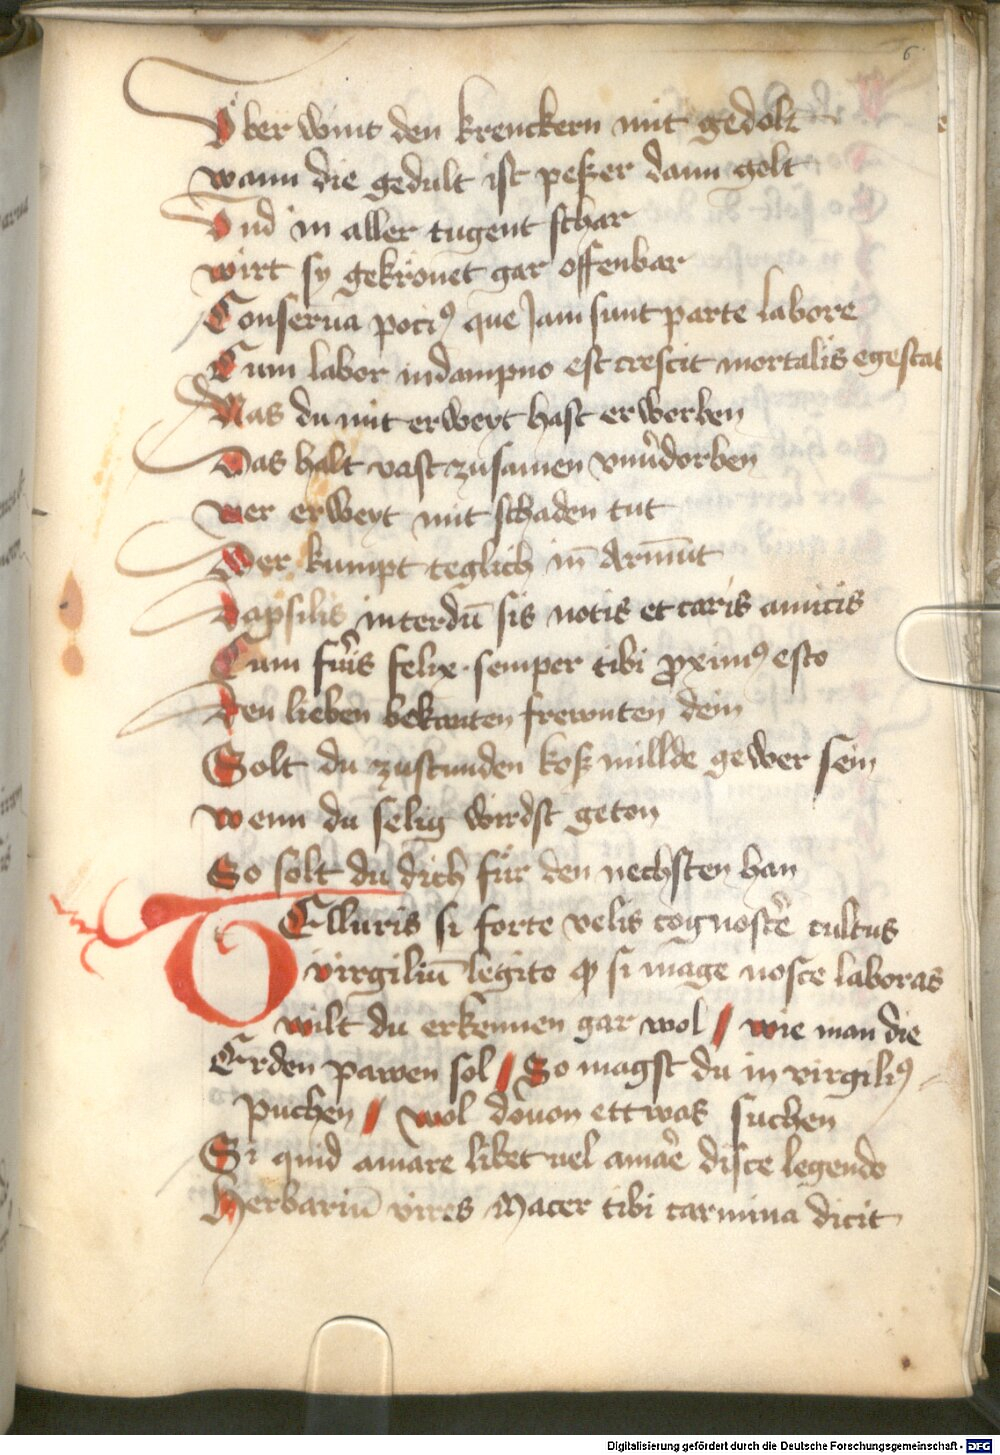 6
Vber wint den krenckern mit gedolt
wann die gedult ist peßer dann golt
Vnd in aller tugent schar
wirt sy gekrönet gar offenbar
Conserua poci9 que Jam sunt parte labore
Cum labor indampno est crescit mortalis egestat
Was du mit erweyt hast erworben
Das halt vast zusamen vnuˀdorben
wer erweyt mit schaden tut
Der kumpt teglich in̄ Armūt
Dapsilis interdū sis notis et caris amicis
Cum fuˀis felix semper tibi ꝓxim9 esto
Den lieben bekanten frewnten dein
Solt du zustunden koß millde gewer sein
wenn du selig wirdst geton
So solt du dich für den nechsten han
TElluris si forte velis cognoscˀe cultus
virgiliū legito ꝙ si mage nosce laboras
wilt du erkennen gar wol / wie man die
Erden pawen sol / So magst du in virgili9
puchen / wol douon ettwas suchen
Si quid amare libet uel amaˀe disce legendo
Herbariū vires Macer tibi carmina dicit
Digitalisierung gefördert durch die Deutsche Forschungsgemeinschaft - DFG